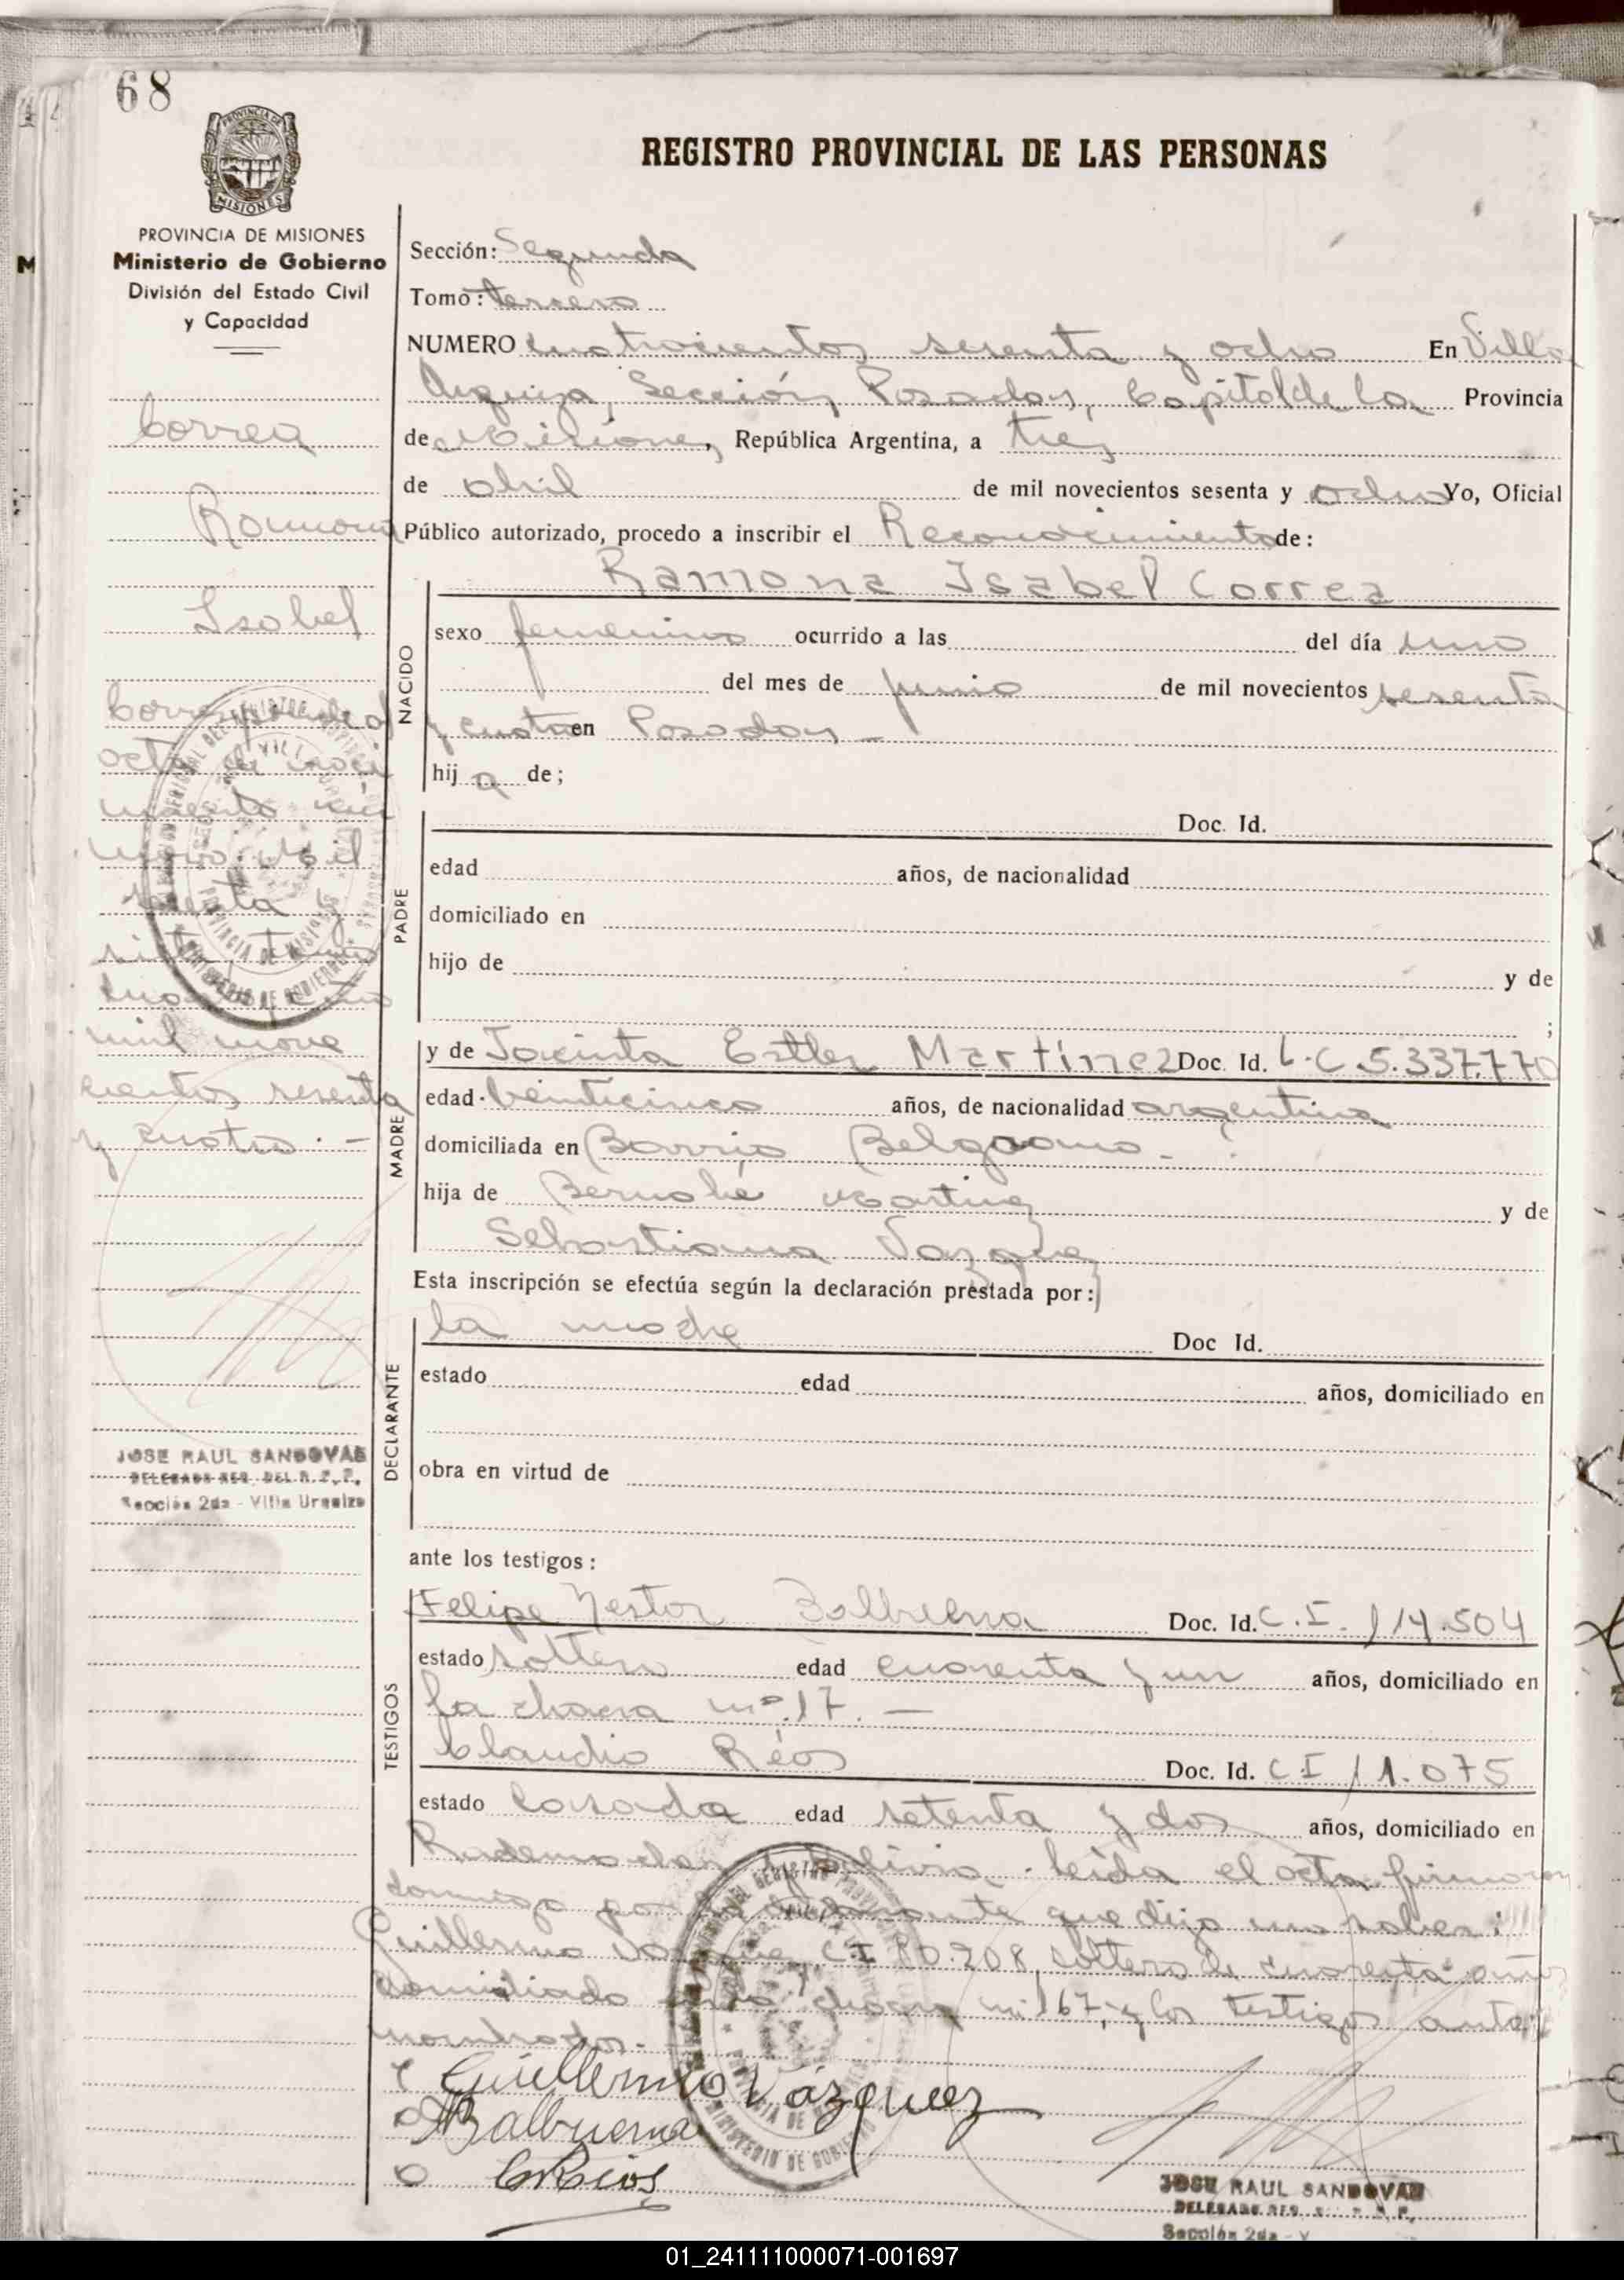 68
PROVINCIA DE MISIONES
PROVINCIA DE MISIONES
Ministerio de Gobierno
División del Estado Civil
y Capacidad
Correa
Ramona
Isabel
Corresponde al
acta de naci
miento nú
mero: Mil
y
mil nove
cientos sesenta
y cuatro.-
JOSE RAUL SANDOVAL
Sección 2da - Villa Urquiza
REGISTRO PROVINCIAL DE LAS PERSONAS
Sección: Segunda
Tomo: tercero
NUMERO cuatrocientos sesenta y ocho En Villa
Urquiza, Sección, Posadas, Capital de la Provincia
de Misiones, República Argentina, a tres
de abril de mil novecientos sesenta y ocho Yo, Oficial
Público autorizado, procedo a inscribir el Reconocimiento de:
Ramona Isabel Correa
NACIDO
sexo femenino ocurrido a las del día uno
del mes de junio de mil novecientos sesenta
y cuatro en Posadas -
hija de;
PADRE
Doc. Id.
edad años, de nacionalidad
domiciliado en
hijo de y de
;
MADRE
y de Jacinta Ester Martínez Doc. Id. L.C 5.337.770
edad veinticinco años, de nacionalidad argentina
domiciliada en Barrio Belgrano -
hija de Bernabé Martinez y de
Sebastiana Vazquez
Esta inscripción se efectúa según la declaración prestada por:
DECLARANTE
la madre Doc Id.
estado edad años, domiciliado en
obra en virtud de
ante los testigos:
TESTIGOS
Felipe Nestor Balbuena Doc. Id. C.I. 114.504
estado soltero edad cuarenta y un años, domiciliado en
la chacra nº 17. -
Claudio Ríos Doc. Id. C I 11.075
estado Casado edad setenta y dos años, domiciliado en
y Bolivia. leída el acta, firmaron
conmigo por la declarante que dijo no saber:
Guillermo Vazquez C I 80.208, soltero de cuarenta años
domiciliado en la chacra nº 167, y los testigos ante
nombrados.-
Guillermo Vázquez
Balbuena
C Rios
JOSE RAUL SANDOVAL
Sección 2da - V
01_241111000071-001697